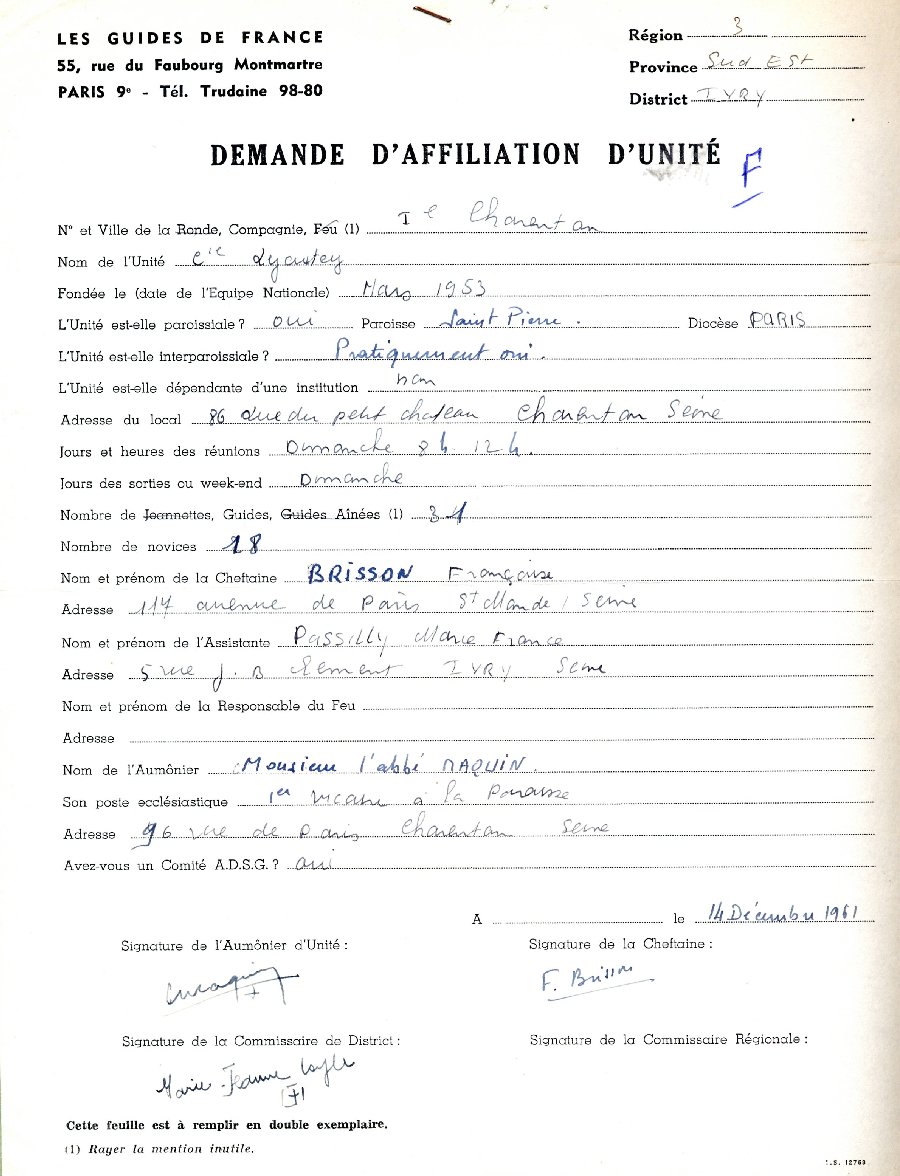 LES GUIDES DE FRANCE
55, rue du Faubourg Montmartre
PARIS 9e - Tél. Trudaine 98-80
Région 3
Province Sud Est
District IVRY
DEMANDE D'AFFILIATION D'UNITÉ
F
N° et Ville de la Ronde, Compagnie, Feu (1) Ie Charenton
Nom de l'Unité Cie Lyautey
Fondée le (date de l'Equipe Nationale) Mars 1953
L'Unité est-elle paroissiale ? oui Paroisse Saint Pierre. Diocèse PARIS
L'Unité est-elle interparoissiale ? Pratiquement oui.
L'Unité est-elle dépendante d'une institution non
Adresse du local 86 rue du petit chateau Charenton Seine
Jours et heures des réunions Dimanche 8h. 12h.
Jours des sorties ou week-end Dimanche
Nombre de Jeannettes, Guides, Guides Aînées (1) 31
Nombre de novices 18
Nom et prénom de la Cheftaine BRISSON Françoise
Adresse 117 avenue de Paris St Mandé Seine
Nom et prénom de l'Assistante PASSILLY Marie France
Adresse 5 rue J. B Clement IVRY Seine
Nom et prénom de la Responsable du Feu
Adresse
Nom de l'Aumônier Monsieur l'abbé MAQUIN.
Son poste ecclésiastique 1er vicaire à la Paroisse
Adresse 96 rue de Paris Charenton Seine
Avez-vous un Comité A.D.S.G. ? oui
A le 14 Décembre 1961
Signature de l'Aumônier d'Unité :
Signature de la Cheftaine :
F. Brisson
Signature de la Commissaire de District :
Signature de la Commissaire Régionale :
Marie-Jeanne
Cette feuille est à remplir en double exemplaire.
(1) Rayer la mention inutile.